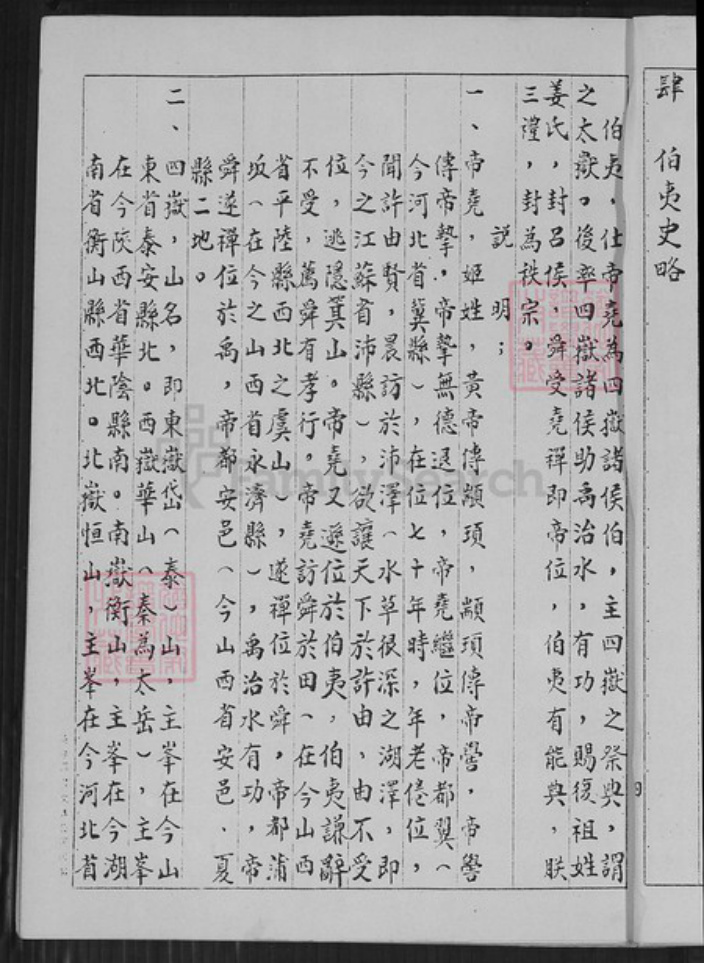 肆　伯夷史略
伯夷，仕帝堯為四嶽諸侯伯，主四嶽之祭典，謂
之太嶽。後率四嶽諸侯助禹治水，有功，賜復祖姓
姜氏，封呂侯，舜受堯禪即帝位，伯夷有能典，朕
三禮，封為秩宗。
說明；
一、帝堯，姬姓，黃帝傳顓頊，顓頊傳帝嚳，帝嚳
傳帝摯，帝摯無德退位，帝堯繼位，帝都翼（
今河北省冀縣），在位七十年時，年老倦位，
聞許由賢，晨訪於沛澤（水草很深之湖澤，即
今之江蘇省沛縣），欲讓天下於許由，由不受
位，逃隱箕山。帝堯又遜位於伯夷，伯夷謙辭
不受，薦舜有孝行。帝堯訪舜於田（在今山西
省平陸縣西北之虞山），遂禪位於舜，帝都蒲
坂（在今之山西省永濟縣），禹治水有功，帝
舜遂禪位於禹，帝都安邑（今山西省安邑、夏
縣二地。
二、四嶽，山名，即東嶽岱（泰）山，主峯在今山
東省泰安縣北。西嶽華山（秦為太岳），主峯
在今陝西省華陰縣南。南嶽衡山，主峯在今湖
南省衡山縣西北。北嶽恒山，主峯在今河北省
FamilySearch